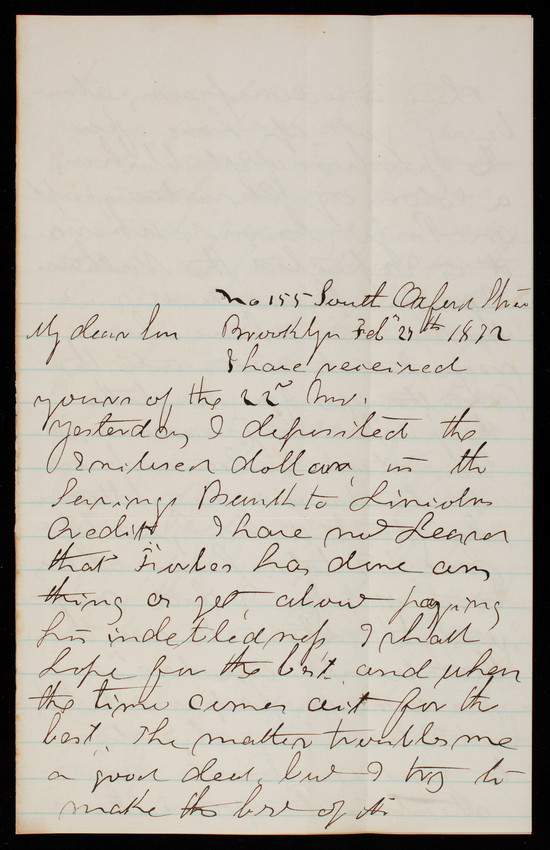 No 155 South Oxford Stree
My dear Son Brooklyn Feb 27th 1872
I have received
yours of the 22nd Inst.
Yesterday I deposited the
dollars, in the
Savings Bank to Lincolns
Credit I have not learn
that Forbes has done any
thing as yet about paying
his indebtedness, I shall
hope for the best, and when
the time comes act for the
best. The matter troubles me
a good deal, but I try to
make the best of it